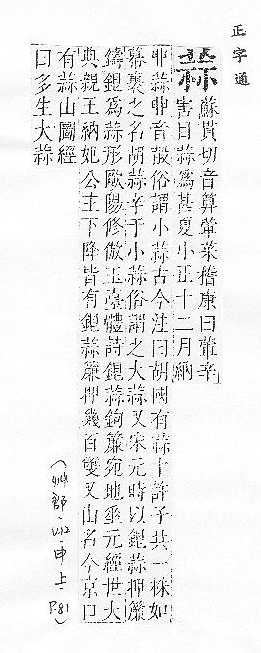 正字通
蒜 蘇貫切音算葷菜嵇康曰葷辛
害目蒜為甚夏小正十二月納
卵蒜卵音俗謂小蒜古今注曰胡國有蒜十許子共一株如
幕裹之名胡蒜辛于小蒜俗謂之大蒜又宋元時以銀蒜押簾
鑄銀為蒜形歐陽修倣玉臺體詩銀蒜鉤簾宛地垂元經世大
典親王納妃公主下降皆有銀蒜簾押幾百雙又山名今京口
有蒜山圖經
曰多生大蒜
(艸部·V.12·申上·P.81)